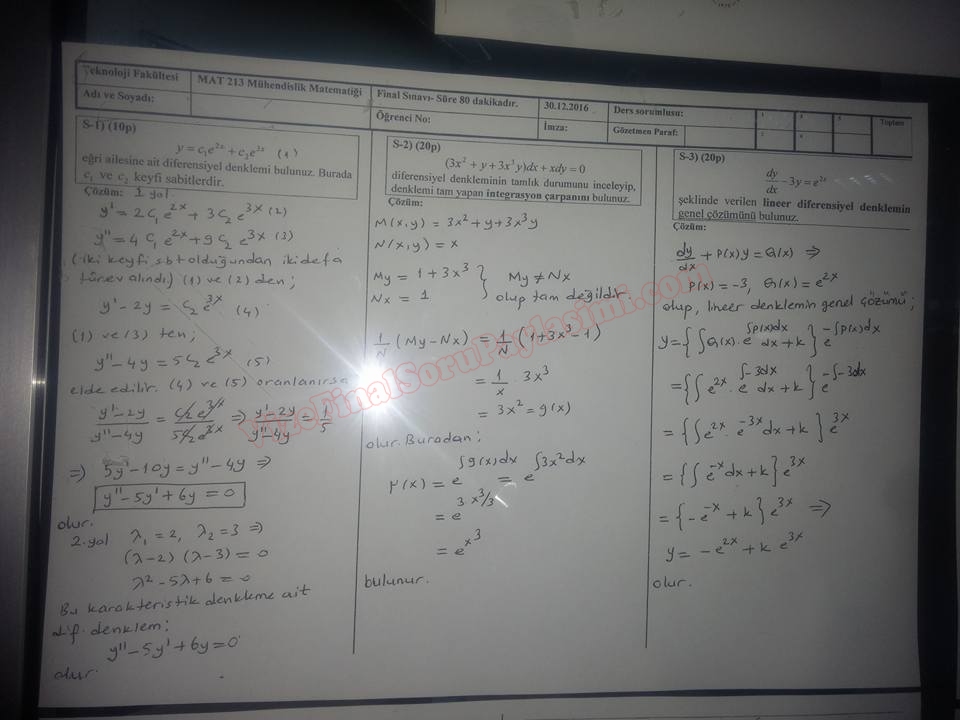 Teknoloji Fakültesi
MAT 213 Mühendislik Matematiği
Final Sınavı- Süre 80 dakikadır.
30.12.2016
Ders sorumlusu:
1
3
5
Toplam
Adı ve Soyadı:
Öğrenci No:
İmza:
Gözetmen Paraf:
2
4
S-1) (10p)
y = c₁e^2x + c₂e^3x (1)
eğri ailesine ait diferensiyel denklemi bulunuz. Burada
c₁ ve c₂ keyfi sabitlerdir.
Çözüm: 1 yol
y' = 2C₁e^2x + 3C₂e^3x (2)
y'' = 4C₁e^2x + 9C₂e^3x (3)
(iki keyfi sbt olduğundan iki defa
türev alındı) (1) ve (2) den;
y' - 2y = C₂e^3x (4)
(1) ve (3) ten;
y'' - 4y = 5C₂e^3x (5)
elde edilir. (4) ve (5) oranlanırsa
y'-2y / y''-4y = C₂e^3x / 5C₂e^3x ⇒ y'-2y / y''-4y = 1/5
⇒ 5y' - 10y = y'' - 4y ⇒
y'' - 5y' + 6y = 0
olur.
2. yol λ₁ = 2, λ₂ = 3 ⇒
(λ-2) (λ-3) = 0
λ² - 5λ + 6 = 0
Bu karakteristik denkleme ait
dif. denklem;
y'' - 5y' + 6y = 0
olur.
S-2) (20p)
(3x² + y + 3x³y)dx + xdy = 0
diferensiyel denkleminin tamlık durumunu inceleyip,
denklemi tam yapan integrasyon çarpanını bulunuz.
Çözüm:
M(x,y) = 3x² + y + 3x³y
N(x,y) = x
My = 1 + 3x³ } My ≠ Nx
Nx = 1 olup tam değildir.
1/N (My - Nx) = 1/N (1 + 3x³ - 1)
= 1/x . 3x³
= 3x² = g(x)
olur. Buradan;
μ(x) = e^∫g(x)dx = e^∫3x²dx
= e^3x³/3
= e^x³
bulunur.
S-3) (20p)
dy/dx - 3y = e^2x
şeklinde verilen lineer diferensiyel denklemin
genel çözümünü bulunuz.
Çözüm:
dy/dx + P(x)y = Q(x) ⇒
P(x) = -3, Q(x) = e^2x
olup, lineer denklemin genel çözümü;
y = {∫Q(x). e^∫P(x)dx dx + k} e^-∫P(x)dx
= {∫e^2x . e^∫-3dx dx + k} e^-∫-3dx
= {∫e^2x . e^-3x dx + k} e^3x
= {∫e^-x dx + k} e^3x
= {-e^-x + k} e^3x ⇒
y = -e^2x + k e^3x
olur.
VizeFinalSoruPaylasimi.com